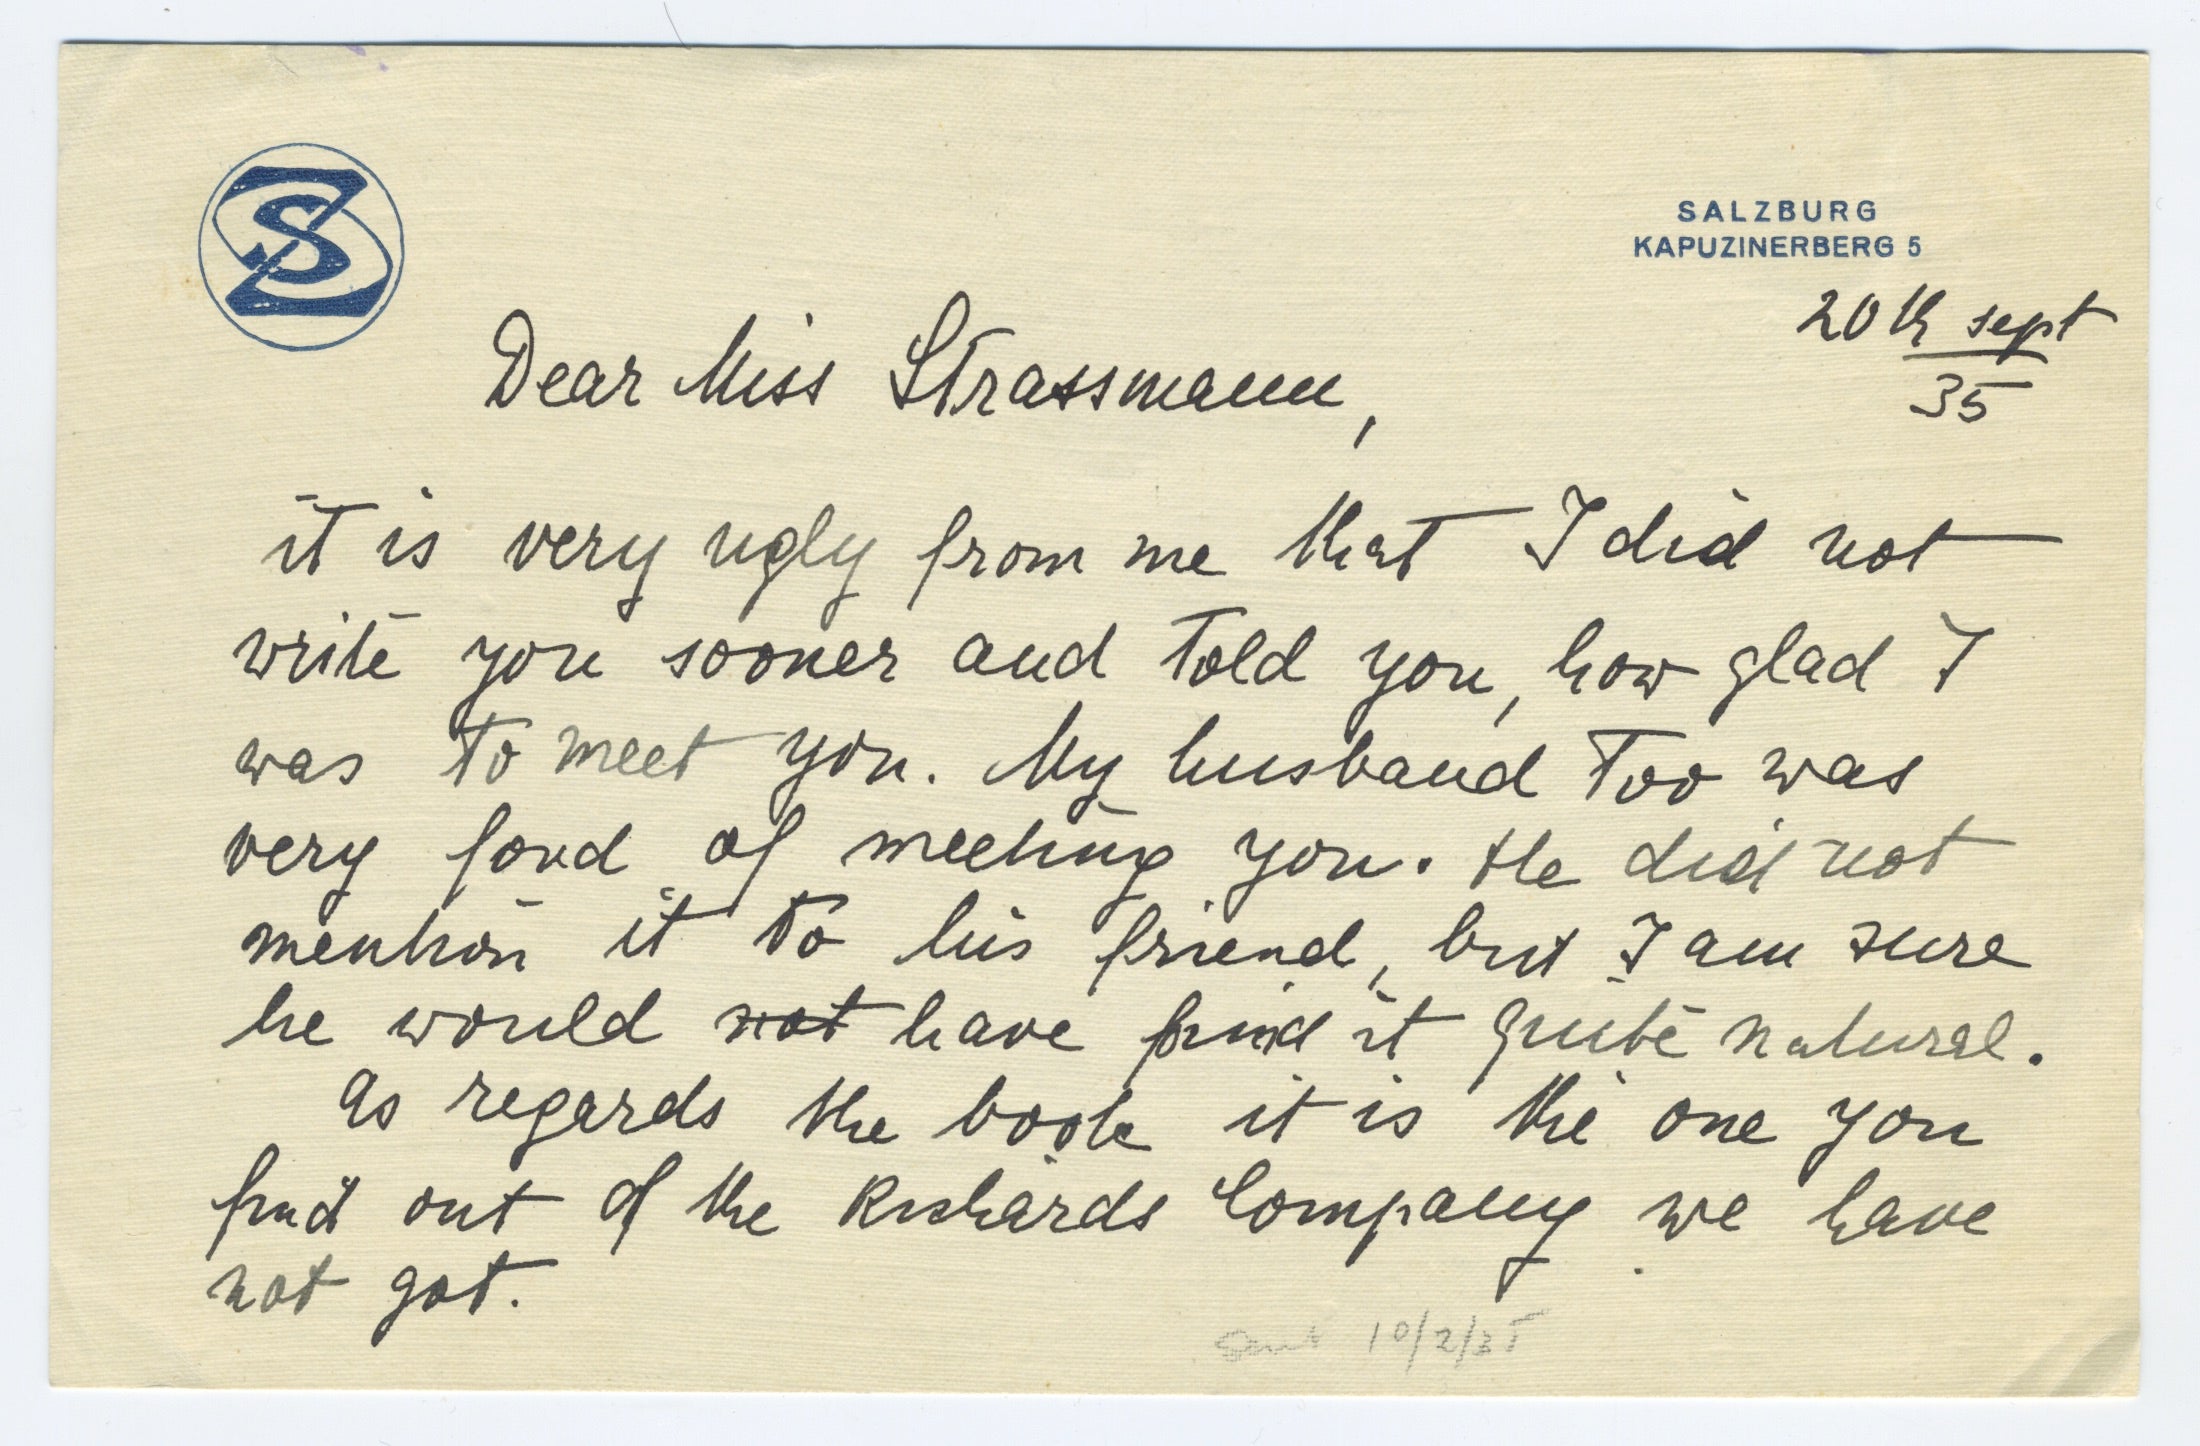 SZ
SALZBURG
KAPUZINERBERG 5
20th sept
35
Dear Miss Strassmann,
it is very ugly from me that I did not
write you sooner and told you, how glad I
was to meet you. My husband too was
very fond of meeting you. He did not
mention it to his friend, but I am sure
he would not have find it quite natural.
As regards the book it is the one you
find out of the Richards Company we have
not got.
Sent 10/2/35